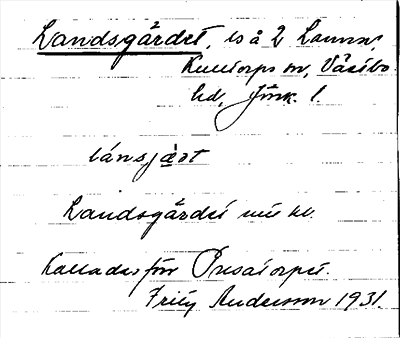 Landsgårdet, ls å 2 Lanna,
Kulltorps sn, Västbo
hd, Jönk. l.
lánsjæ̀ṛt
Landsgårdet nu kl.
Kallades för Prusatorpet.
Fritz Andersson 1931.